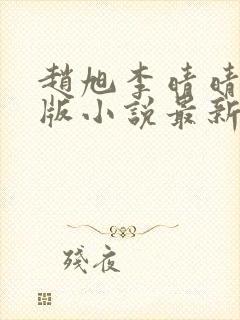 趙旭李晴晴
版小說最新
殘夜